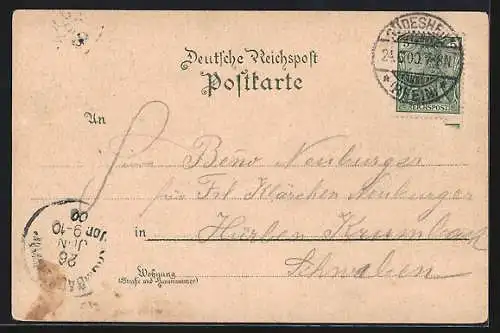 RÜDESHEIM
24.6.00.7-8N.
* (RHEIN) *
REICHSPOST
Deutsche Reichspost
Postkarte
An
Herrn Beno Neuburger
für Frl Klärchen Neuburger
in Hürben Krumbach
Schwaben
Wohnung
(Straße und Hausnummer)
26
JUN
9-10
00